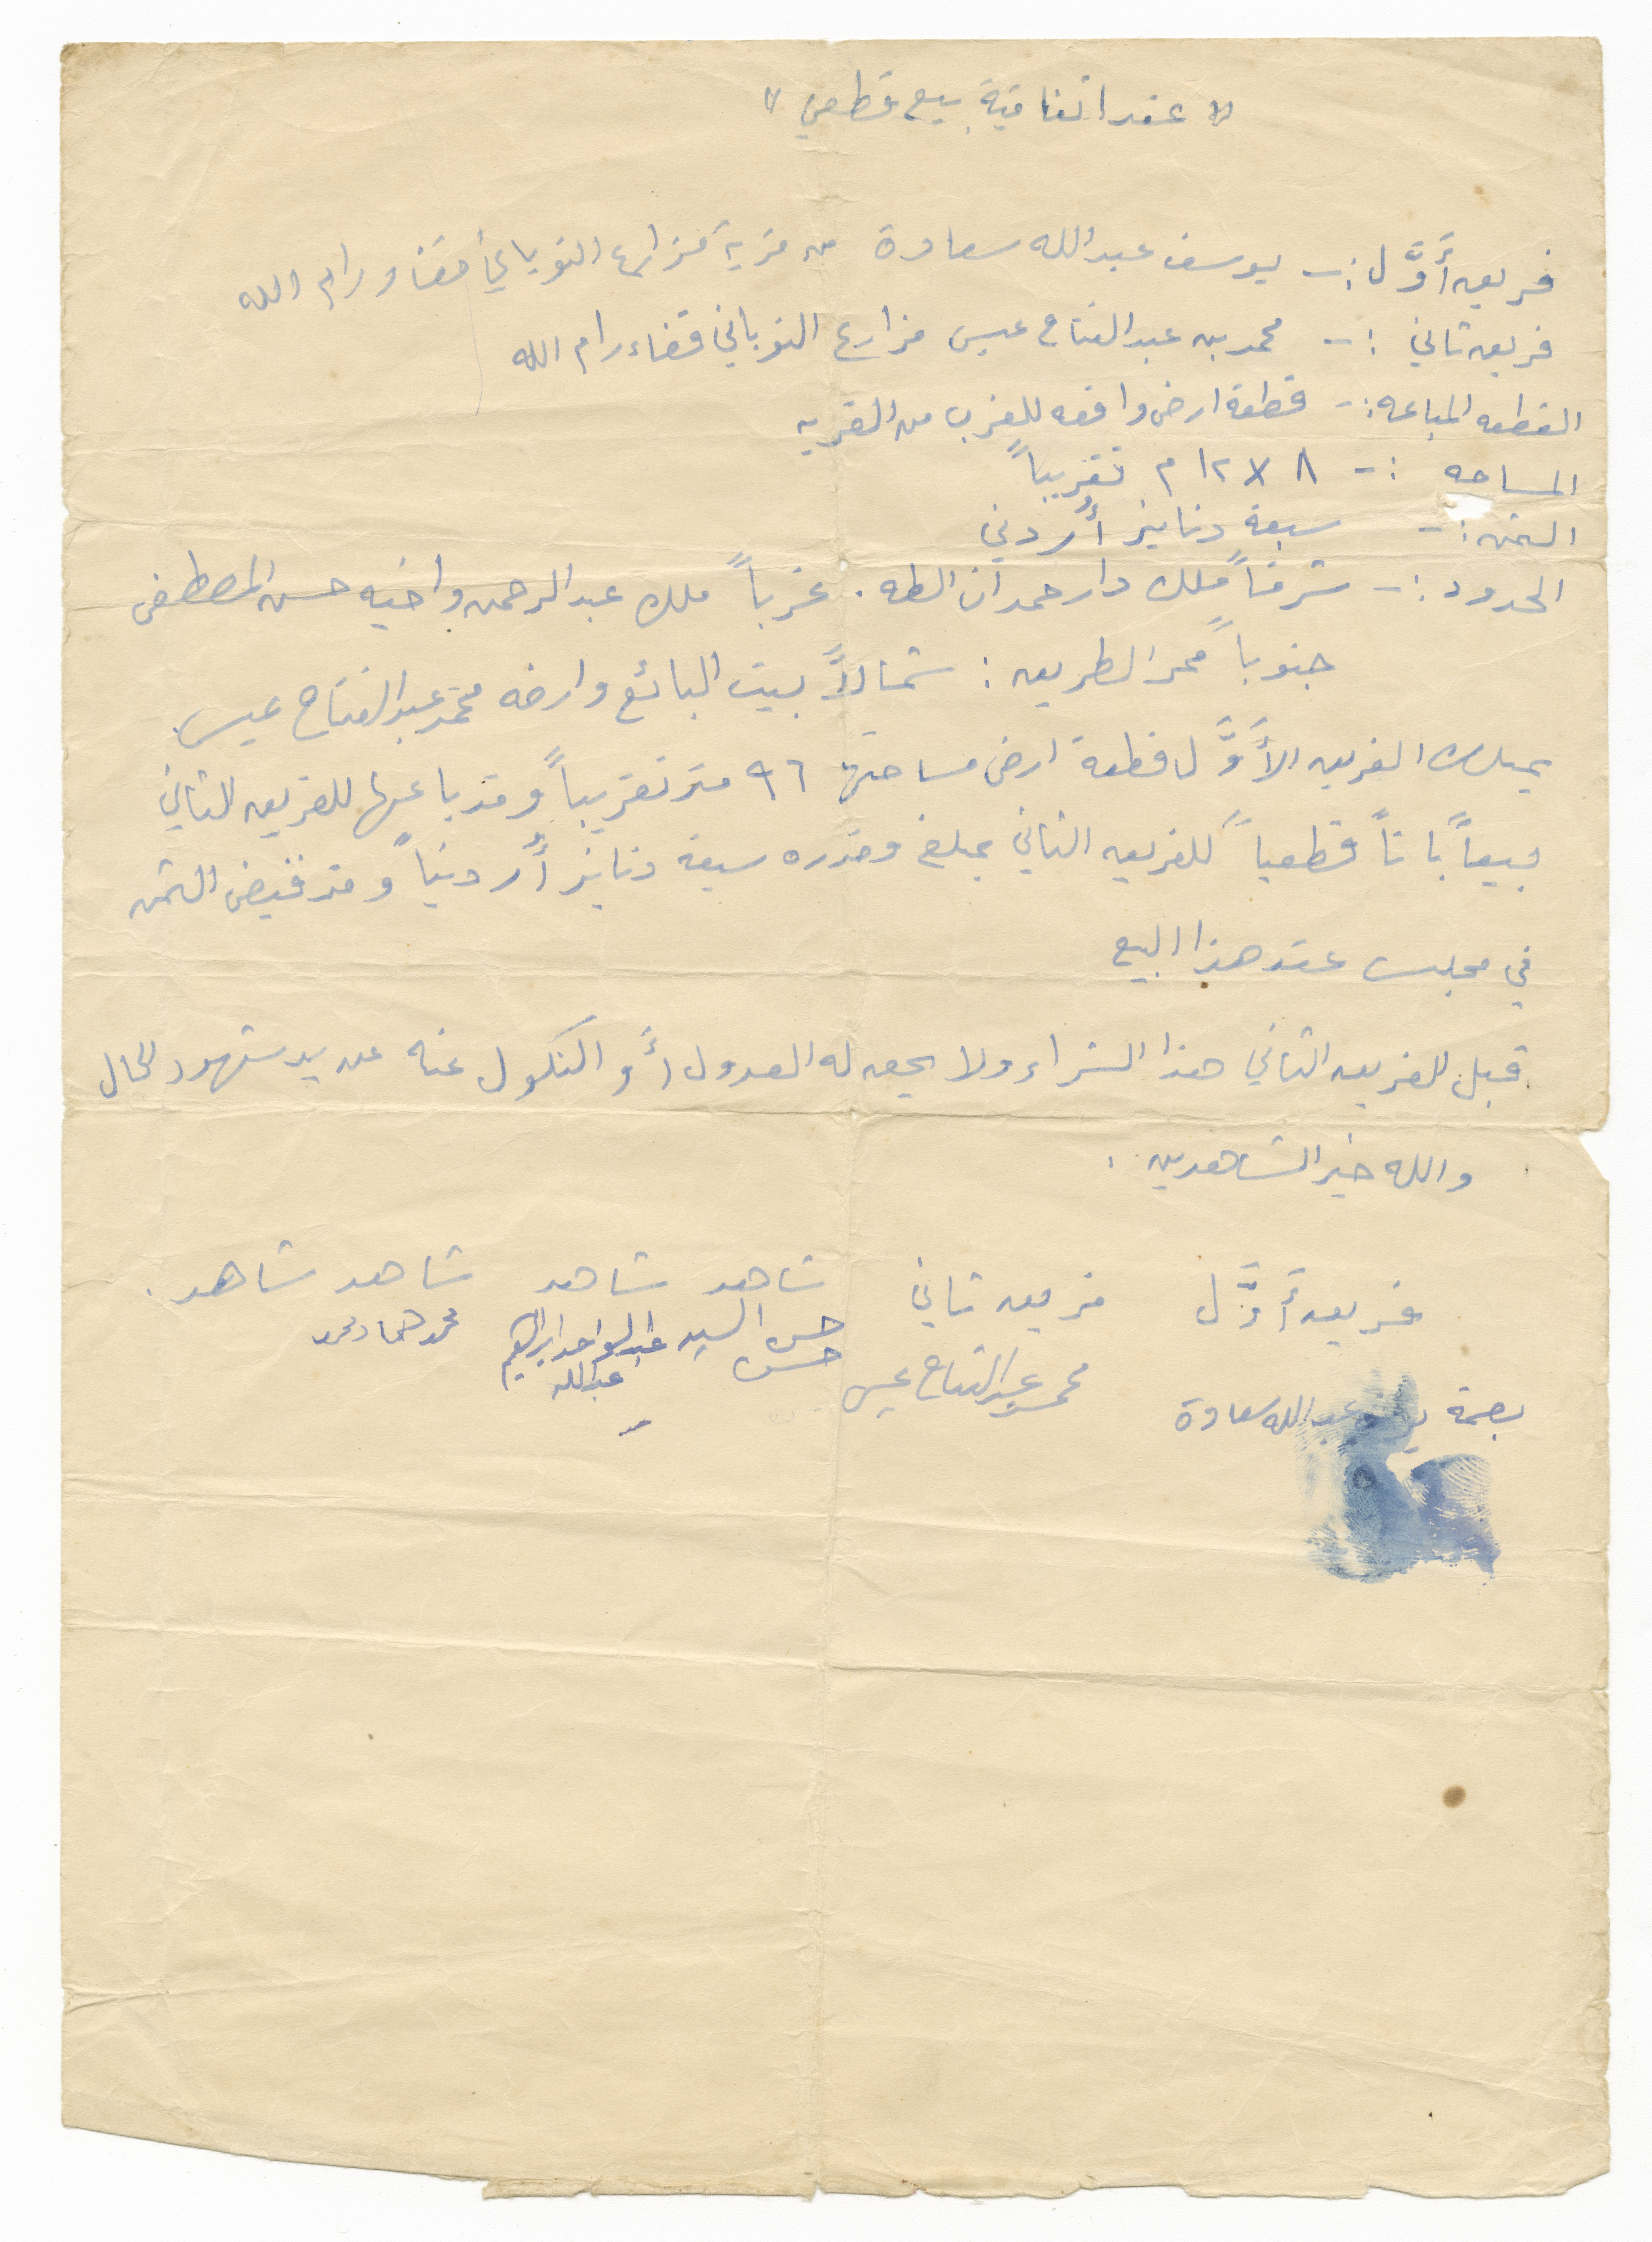 " عقد اتفاقية بيع قطعي "
فريق أَوَّل :- يوسف عبدالله سعادة من قرية مزارع النوباني قضاء رام الله
فريق ثاني :- محمد بن عبد الفتاح عيسى مزارع النوباني قضاء رام الله
القطعه المباعه :- قطعة ارض واقعه للغرب من القريه
المساحه :- ٨ × ١٢ م تقريباً
الثمن :- سبعة دنانير أُردني
الحدود :- شرقاً ملك دار حمدان الطه . غرباً ملك عبد الرحمن واخيه حسن المصطفى
جنوباً ممر الطريق : شمالاً بيت البائع وارضه محمد عبد الفتاح عيسى
يملك الفريق الأَوَّل قطعة ارض مساحتها ٩٦ متر تقريباً وقد باعها للفريق الثاني
بيعاً باتاً قطعياً للفريق الثاني بمبلغ وقدره سبعة دنانير أُردنياً وقد قبض الثمن
في مجلس عقد هذا البيع
قبل الفريق الثاني هذا الشراء ولا يحق له العدول أَو النكول عنه عن يد شهود الحال
والله خير الشاهدين .
فريق أَوَّل فريق ثاني شاهد شاهد شاهد شاهد .
بصمة يوسف عبدالله سعادة محمد عبد الفتاح عيسى حسن السيد حسن عبد الواحد ابراهيم عبدالله محمد حماد محمد